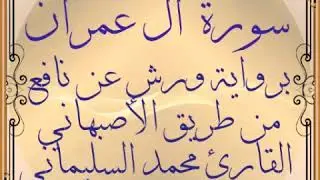 سورة آل عمران
برواية ورش عن نافع
من طريق الأصبهاني
القارئ محمد السليماني